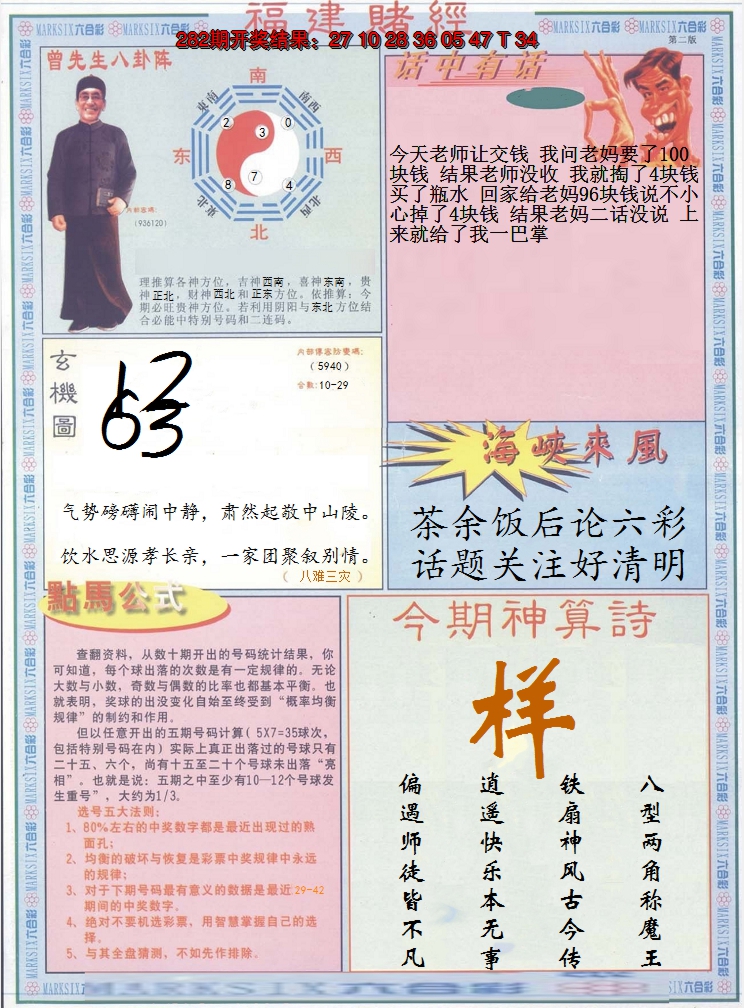 福建賭經
282期开奖结果：27 10 28 36 05 47 T 34
第二版
MARKSIX六合彩
曾先生八卦阵
南
東南
南西
东
西
東北
北西
北
2
3
0
8
7
4
内部密碼:
(936120)
理推算各神方位，吉神西南，喜神东南，贵
神正北，财神西北和正东方位。依推算：今
期必旺贵神方位。若利用阴阳与东北方位结
合必能中特别号码和二连码。
话中有话
今天老师让交钱 我问老妈要了100
块钱 结果老师没收 我就掏了4块钱
买了瓶水 回家给老妈96块钱说不小
心掉了4块钱 结果老妈二话没说 上
来就给了我一巴掌
玄機圖
(5940)
合数:10-29
气势磅礴闹中静，肃然起敬中山陵。
饮水思源孝长亲，一家团聚叙别情。
（八难三灾）
海峡來風
茶余饭后论六彩
话题关注好清明
點馬公式
查翻资料，从数十期开出的号码统计结果，你
可知道，每个球出落的次数是有一定规律的。无论
大数与小数，奇数与偶数的比率也都基本平衡。也
就表明，奖球的出没变化自始至终受到“概率均衡
规律”的制约和作用。
但以任意开出的五期号码计算（5X7=35球次，
包括特别号码在内）实际上真正出落过的号球只有
二十五、六个，尚有十五至二十个号球未出落“亮
相”。也就是说：五期之中至少有10—12个号球发
生重号”，大约为1/3。
选号五大法则：
1、80%左右的中奖数字都是最近出现过的熟
面孔；
2、均衡的破坏与恢复是彩票中奖规律中永远
的规律；
3、对于下期号码最有意义的数据是最近29-42
期间的中奖数字。
4、绝对不要机选彩票，用智慧掌握自己的选
择。
5、与其全盘猜测，不如先作排除。
今期神算詩
样
八型两角称魔王
铁扇神风古今传
逍遥快乐本无事
偏遇师徒皆不凡